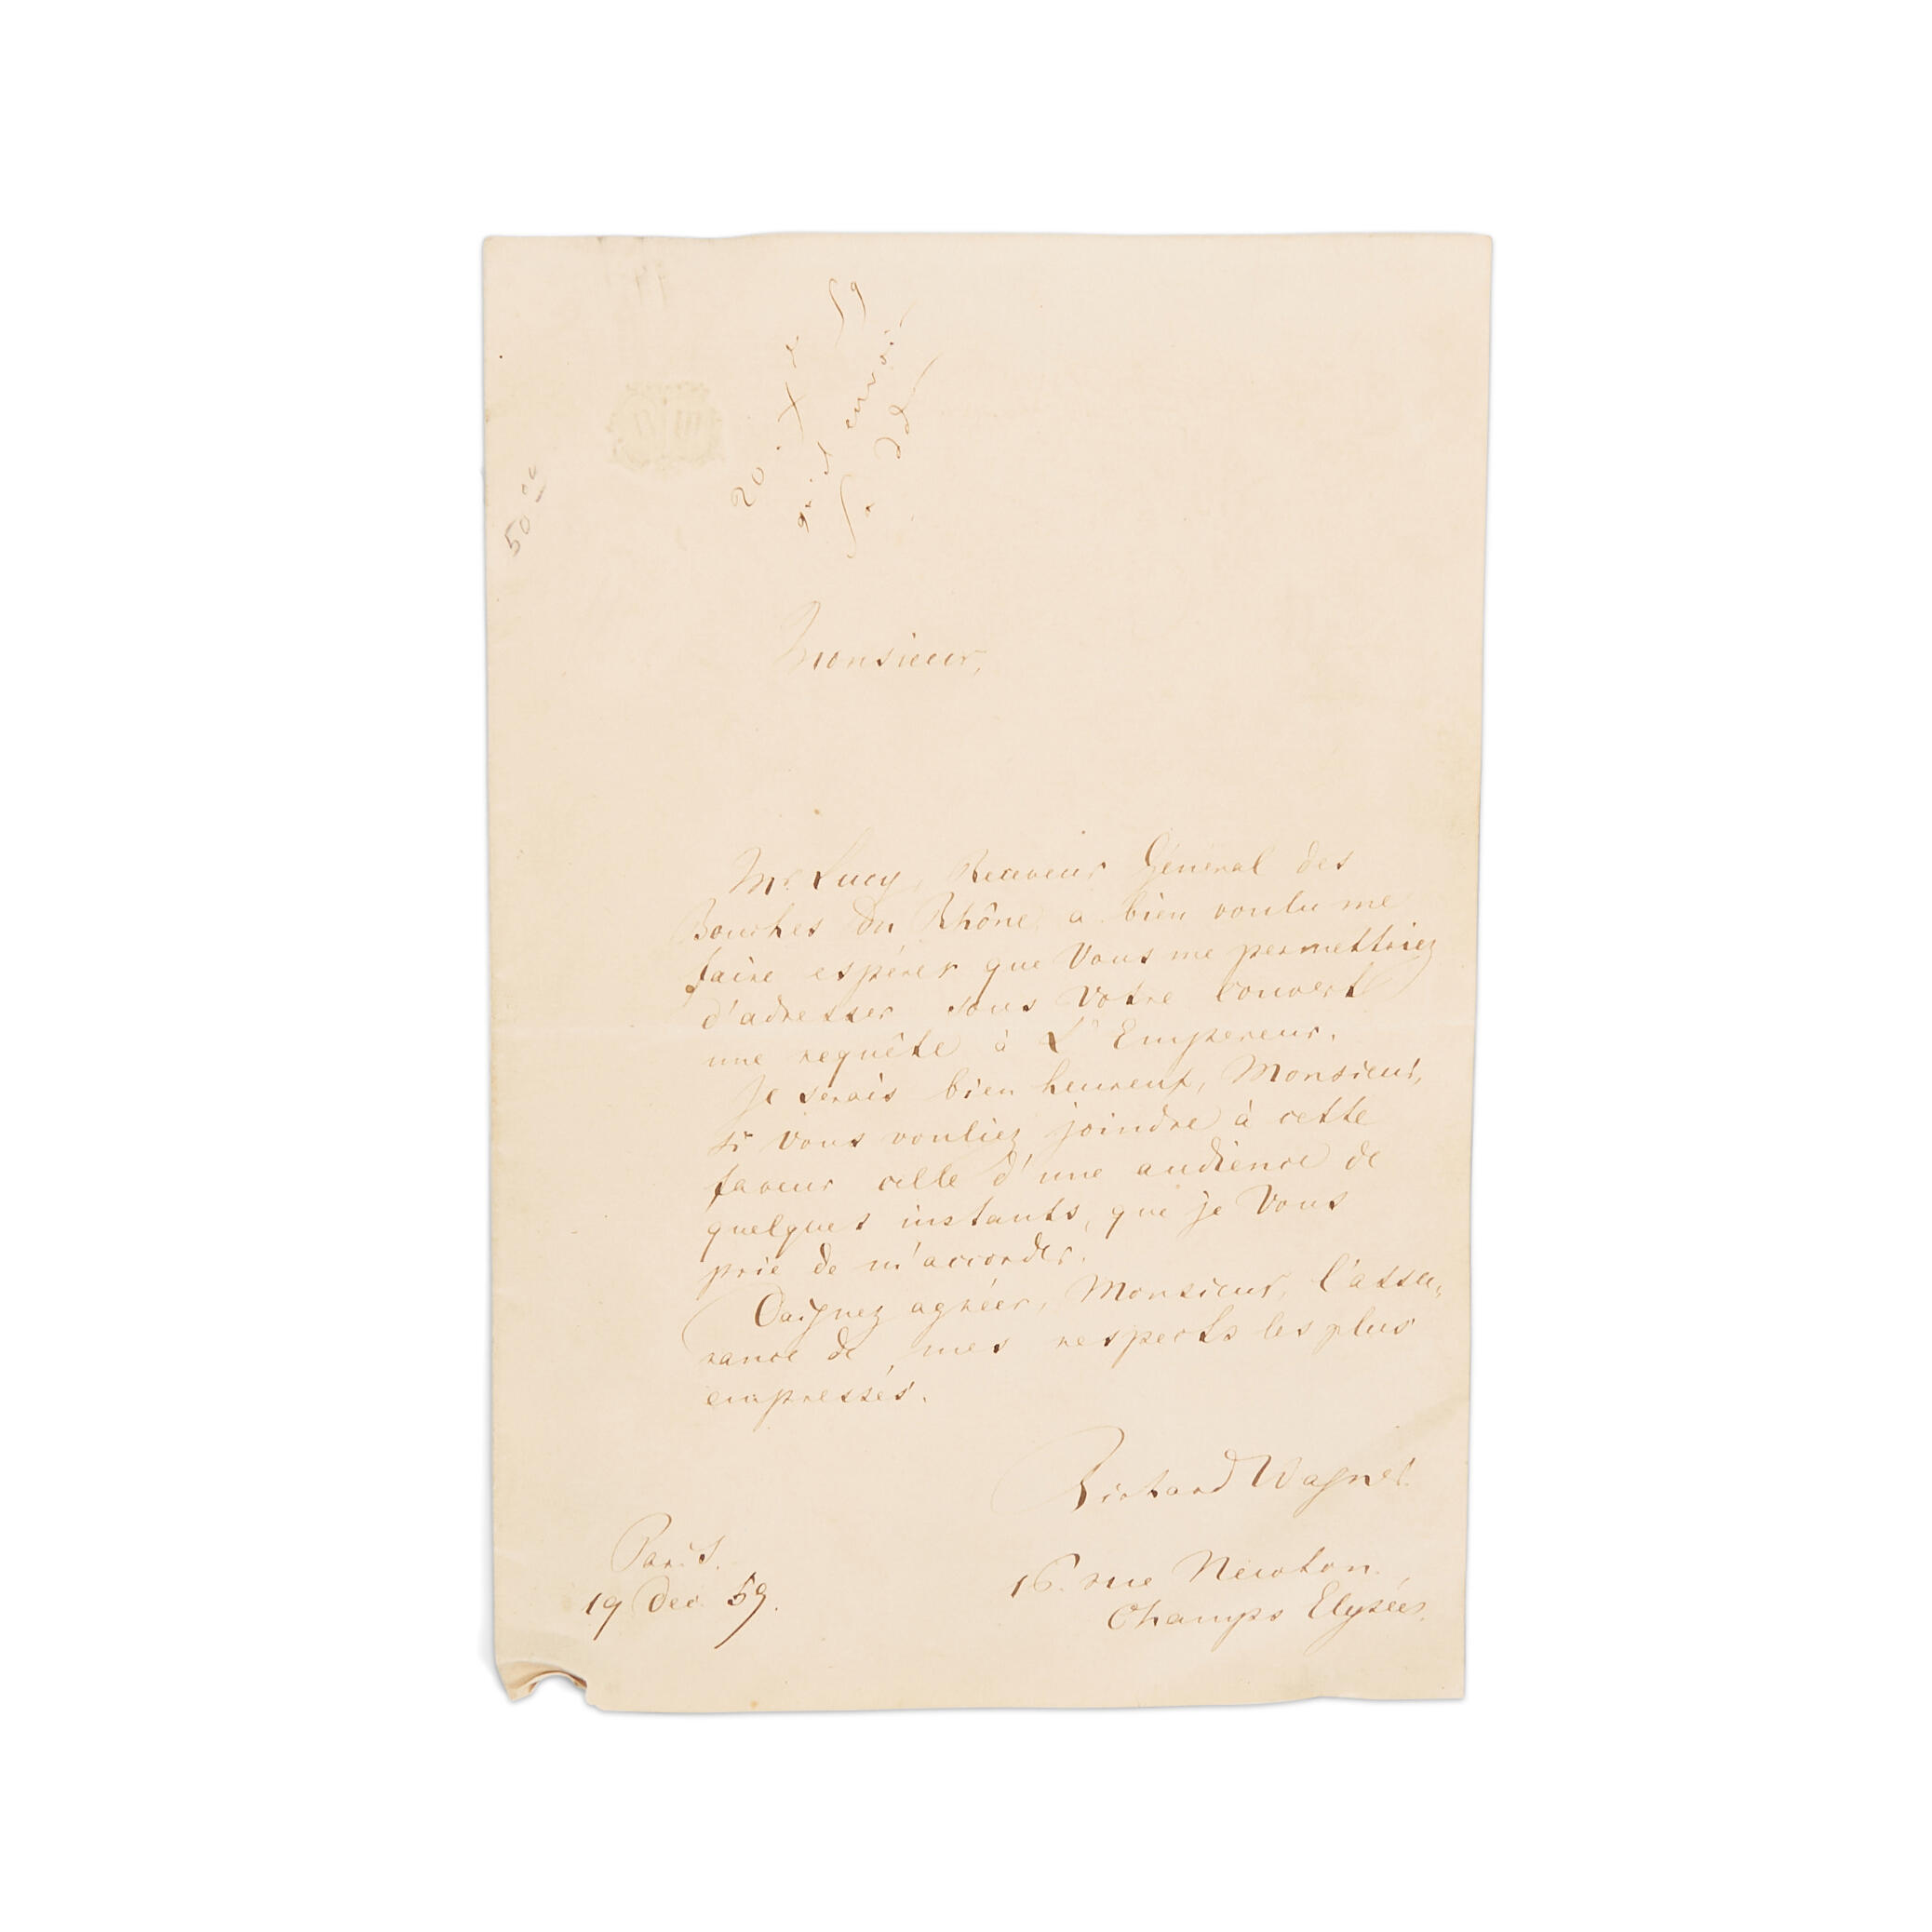 20. Xe 59
qu'il envoie
sa de
50.00
Monsieur,
Mr. Lucy, Receveur Général des
Bouches du Rhône a bien voulu me
faire espérer que Vous me permettriez
d'adresser sous Votre couvert
une requête à L'Empereur.
Je serais bien heureux, Monsieur,
si Vous vouliez joindre à cette
faveur celle d'une audience de
quelques instants, que je Vous
prie de m'accorder.
Daignez agréer, Monsieur, l'assu-
rance de mes respects les plus
empressés.
Richard Wagner.
Paris.
19 Dec. 59.
16. rue Newton.
Champs Elysées.